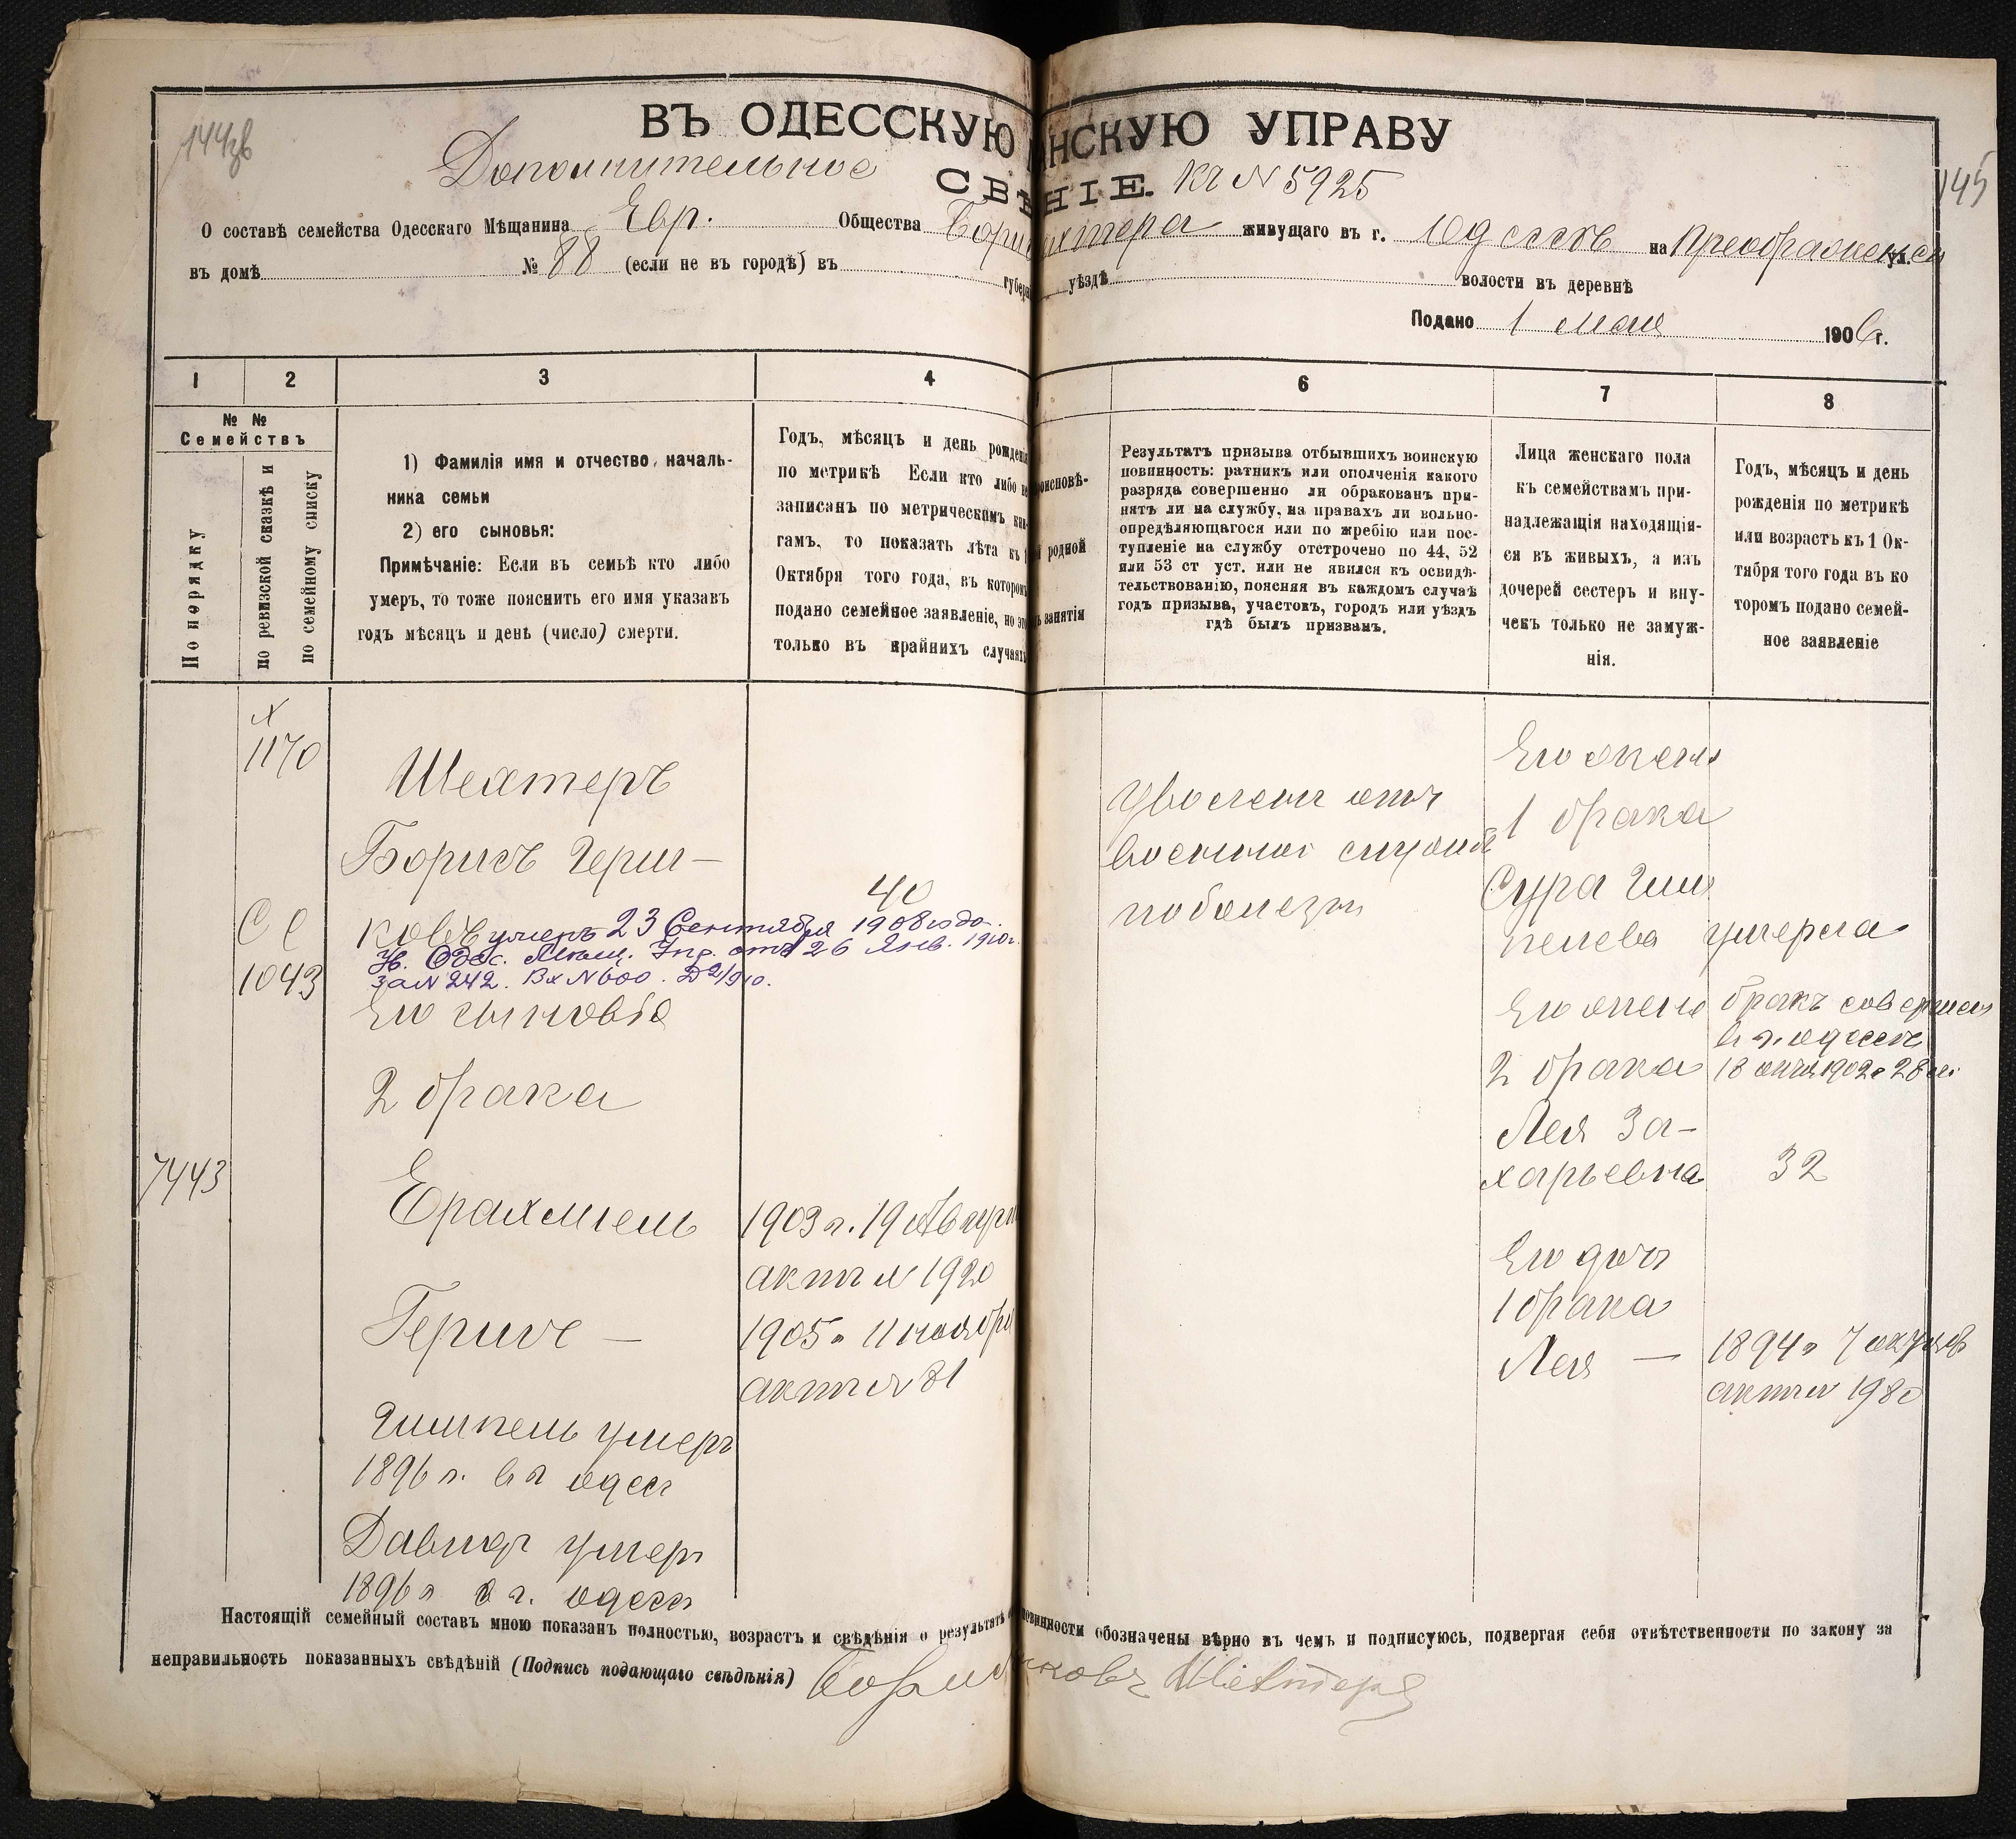 144 зв
145
ВЪ ОДЕССКУЮ НСКУЮ УПРАВУ
Дополнительное СВѢ НІЕ. къ № 5925
О составѣ семейства Одесскаго Мѣщанина Евр. Общества Бори хтера живущаго въ г. Одессѣ на Преображенск ул.
въ домѣ № 88 (если не въ городѣ) въ губерн уѣздѣ волости въ деревнѣ
Подано 1 Мая 1906 г.
1 2 3 4 6 7 8
№ №
Семействъ
По порядку
по ревизской сказкѣ и
по семейному списку
1) Фамилія имя и отчество началь-
ника семьи
2) его сыновья:
Примѣчаніе: Если въ семьѣ кто либо
умеръ, то тоже пояснить его имя указавъ
годъ мѣсяцъ и денѣ (число) смерти.
Годъ, мѣсяцъ и день рожденія
по метрикѣ Если кто либо не
записанъ по метрическимъ кни-
гамъ, то показать лѣта къ 1
Октября того года, въ которомъ
подано семейное заявленіе, но это
только въ крайнихъ случаяхъ
оисповѣ-
родной
занятія
Результатъ призыва отбывшихъ воинскую
повинность: ратникъ или ополченія какого
разряда совершенно ли обракованъ при-
нятъ ли на службу, на правахъ ли вольно-
опредѣляющагося или по жребію или пос-
тупленіе на службу отстрочено по 44, 52
или 53 ст уст. или не явился къ освидѣ-
тельствованію, поясняя въ каждомъ случаѣ
годъ призыва, участокъ, городъ или уѣздъ
гдѣ былъ призванъ.
Лица женскаго пола
къ семействамъ при-
надлежащія находящія-
ся въ живыхъ, а изъ
дочерей сестеръ и вну-
чекъ только не замуж-
нія.
Годъ, мѣсяцъ и день
рожденія по метрикѣ
или возрастъ къ 1 Ок-
тября того года въ ко
торомъ подано семей-
ное заявленіе
1170
С С
1043
7443
Шехтеръ
Борисъ Герш-
ковъ
умеръ 23 Сентября 1908 года.
Ув. Одес. Мѣщ. Упр. отъ 26 Янв. 1910 г.
за № 242. Вх № 600. Д 2/910.
40
Его сыновья
2 брака
Ерахмиель
1903 г. 19 Августа
актъ № 1920
Гершъ —
1905 г 11 ноября
актъ № 81
Шимпель умеръ
1896 г. въ г Одесс
Давидъ умеръ
1896 г в г. Одесс
Уволенъ отъ
военной службы
по болезни
Его жена
1 брака
Сура Шим
пелева умерла
Его жена
2 брака
Лея За-
харьевна
бракъ соверше
в г. Одессѣ
18 1902 г 28 №
32
Его дочь
1 брака
Лея —
1894 г 7
актъ № 1980
Настоящій семейный составъ мною показанъ полностью, возрастъ и свѣдѣнія о результатѣ повинности обозначены вѣрно въ чемъ и подписуюсь, подвергая себя отвѣтственности по закону за
неправильность показанныхъ свѣдѣній (Подпись подающаго свѣдѣнія) Бори ковъ Шехтеръ